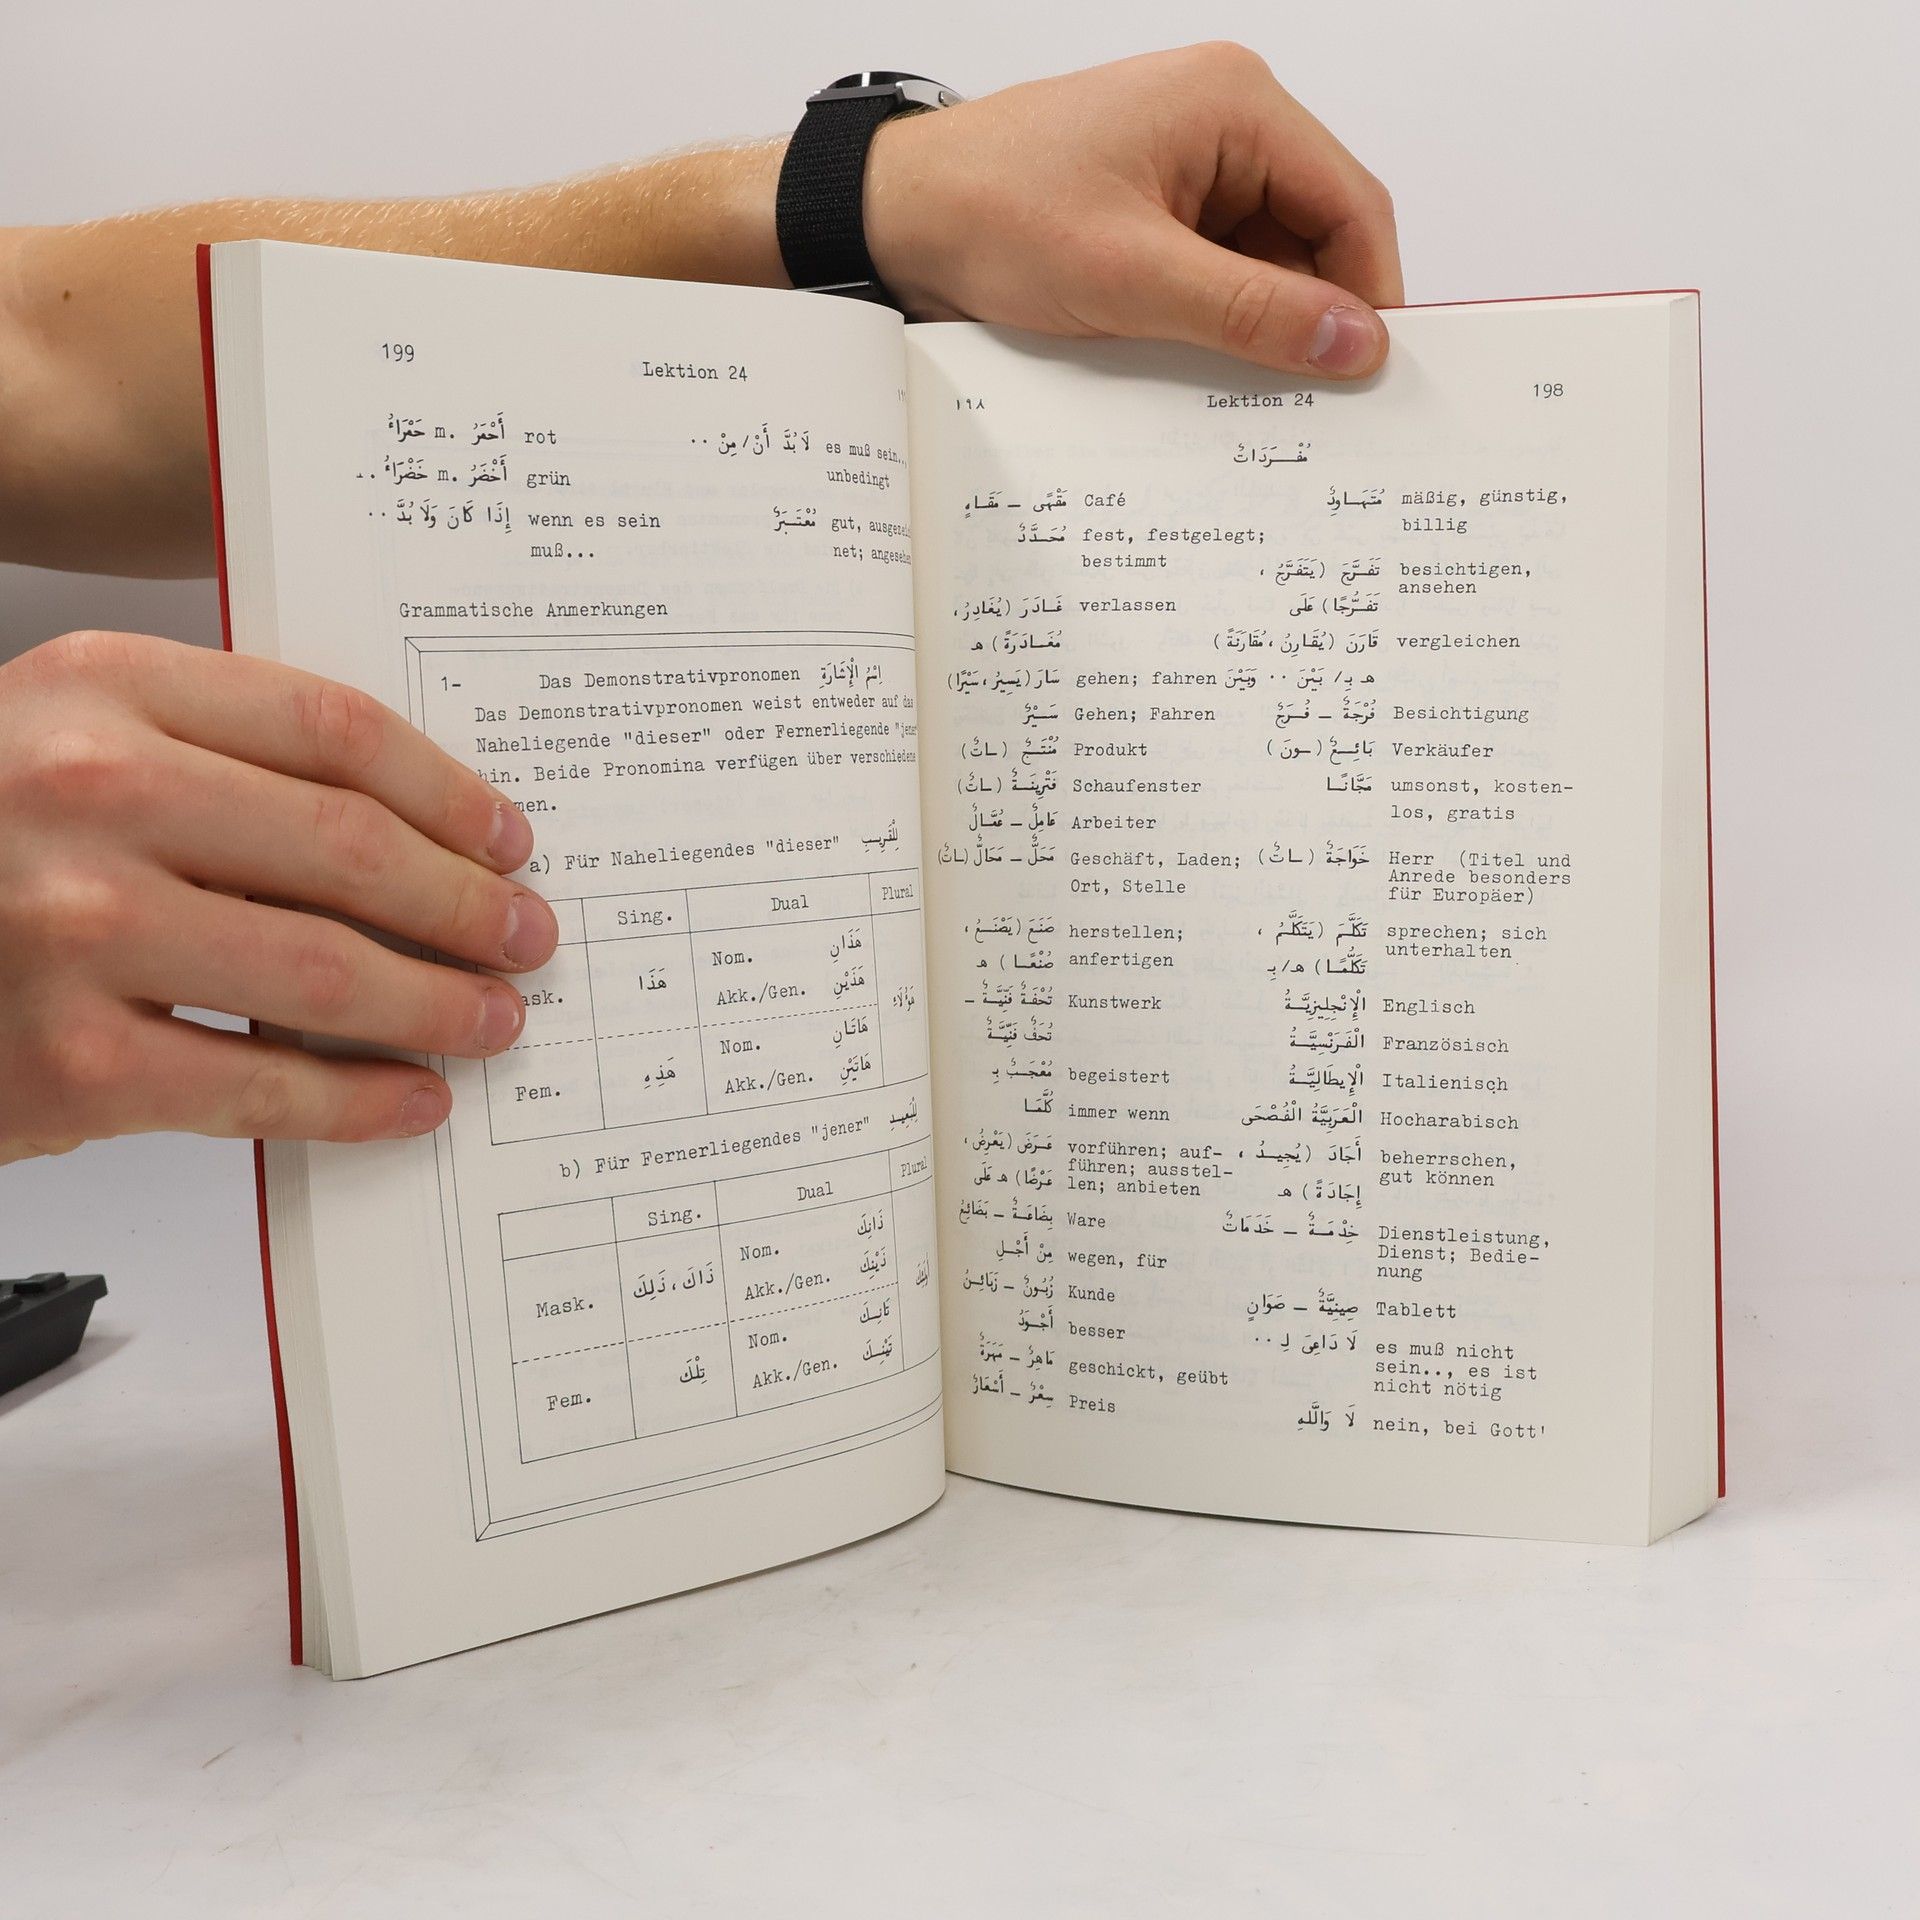 198
Lektion 24
١٩٨
مُفْـــرَدَاتٌ
مَقْهًى – مَقَـاهٍ Café
مُحَـدَّدٌ fest, festgelegt;
bestimmt
غَـادَرَ (يُغَادِرُ، verlassen
مُغَـادَرَةً) هـ
سَارَ (يَسِيرُ، سَيْرًا) gehen; fahren
سَـيْرٌ Gehen; Fahren
مُنْتَـجٌ (ـاتٌ) Produkt
فَتْرِينَـةٌ (ـاتٌ) Schaufenster
عَامِلٌ – عُمَّـالٌ Arbeiter
مَحَلٌّ – مَحَالٌّ (ـاتٌ) Geschäft, Laden;
Ort, Stelle
صَنَعَ (يَصْنَـعُ، herstellen;
صُنْعًـا) هـ anfertigen
تُحْفَةٌ فَنِّيَّـةٌ – Kunstwerk
تُحَفٌ فَنِّيَّـةٌ
مُعْجَـبٌ بِـ begeistert
كُلَّمَـا immer wenn
عَـرَضَ (يَعْرِضُ، vorführen; auf-
führen; ausstel-
عَرْضًا) هـ عَلَى len; anbieten
بِضَاعَـةٌ – بَضَائِعُ Ware
مِنْ أَجْـلِ wegen, für
زُبُونٌ – زَبَائِـنُ Kunde
أَجْـوَدُ besser
مَاهِرٌ – مَهَرَةٌ geschickt, geübt
سِعْرٌ – أَسْعَارٌ Preis
مُتَهَـاوِدٌ mäßig, günstig,
billig
تَفَـرَّجَ (يَتَفَرَّجُ، besichtigen,
ansehen
تَفَـرُّجًا) عَلَى
قَارَنَ (يُقَـارِنُ، مُقَارَنَةً) vergleichen
هـ بِـ/ بَيْنَ .. وَبَيْنَ
فُرْجَةٌ – فُـرَجٌ Besichtigung
بَائِـعٌ (ـونَ) Verkäufer
مَجَّانًـا umsonst, kosten-
los, gratis
خَوَاجَةٌ (ـاتٌ) Herr (Titel und
Anrede besonders
für Europäer)
تَكَلَّـمَ (يَتَكَلَّـمُ، sprechen; sich
unterhalten
تَكَلُّمًـا) هـ/بِـ
الْإِنْجِلِيزِيَّـةُ Englisch
الْفَرَنْسِيَّـةُ Französisch
الْإِيطَالِيَّـةُ Italienisch
الْعَرَبِيَّةُ الْفُصْحَى Hocharabisch
أَجَادَ (يُجِيـدُ، beherrschen,
gut können
إِجَادَةً) هـ
خِدْمَـةٌ – خَدَمَاتٌ Dienstleistung,
Dienst; Bedie-
nung
صِينِيَّةٌ – صَوَانٍ Tablett
لَا دَاعِىَ لِـ .. es muß nicht
sein.., es ist
nicht nötig
لَا وَاللهِ nein, bei Gott'
199
Lektion 24
أَحْمَرُ m. حَمْرَاءُ rot
أَخْضَرُ m. خَضْرَاءُ grün
إِذَا كَانَ وَلَا بُدَّ .. wenn es sein
muß...
لَا بُدَّ أَنْ/مِنْ .. es muß sein..,
unbedingt
مُعْتَـبَرٌ gut,
net;
Grammatische Anmerkungen
1- Das Demonstrativpronomen اِسْمُ الْإِشَارَةِ
Das Demonstrativpronomen weist entweder auf das
Naheliegende "dieser" oder Fernerliegende
hin. Beide Pronomina verfügen über verschiedene
a) Für Naheliegendes "dieser" لِلْقَرِيـبِ
Sing. Dual Plural
هَذَا Nom. هَذَانِ
Akk./Gen. هَذَيْنِ
هَؤُلَاءِ
Fem. هَذِهِ Nom. هَاتَـانِ
Akk./Gen. هَاتَيْنِ
b) Für Fernerliegendes "jener" لِلْبَعِيـدِ
Sing. Dual Plural
Mask. ذَاكَ، ذَلِكَ Nom. ذَانِكَ
Akk./Gen. ذَيْنِكَ
Fem. تِلْكَ Nom. تَانِـكَ
Akk./Gen. تَيْنِـكَ